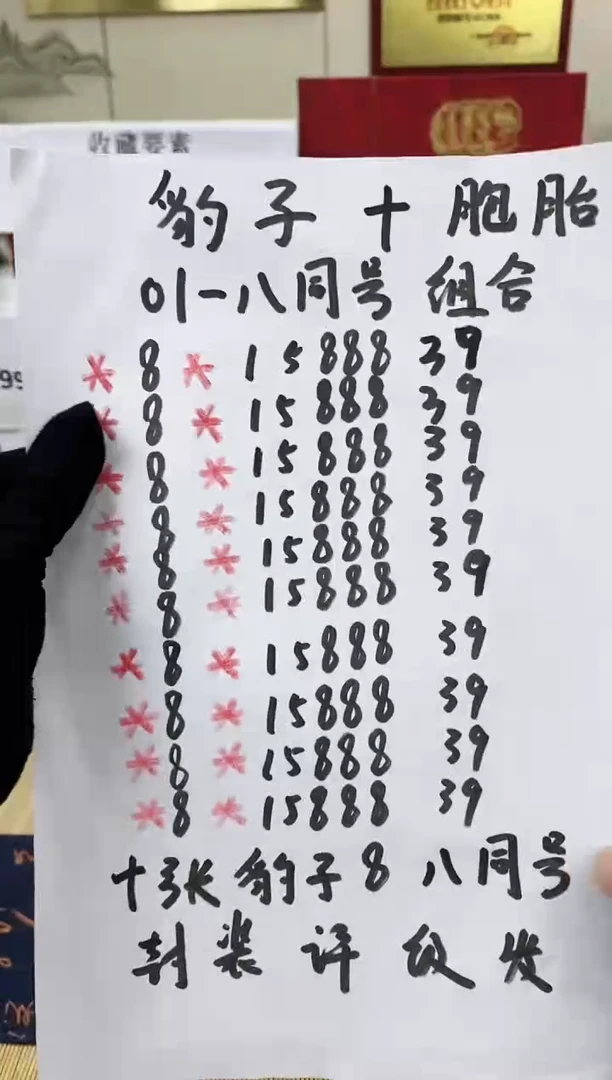 收藏要素
99
豹子十胞胎
01一八同号组合
*8*1588839
*8*1588839
*8*1588839
*8*1588839
*8*1588839
*8*1588839
*8*1588839
*8*1588839
*8*1588839
*8*1588839
十张豹子8八同号
封装评级发